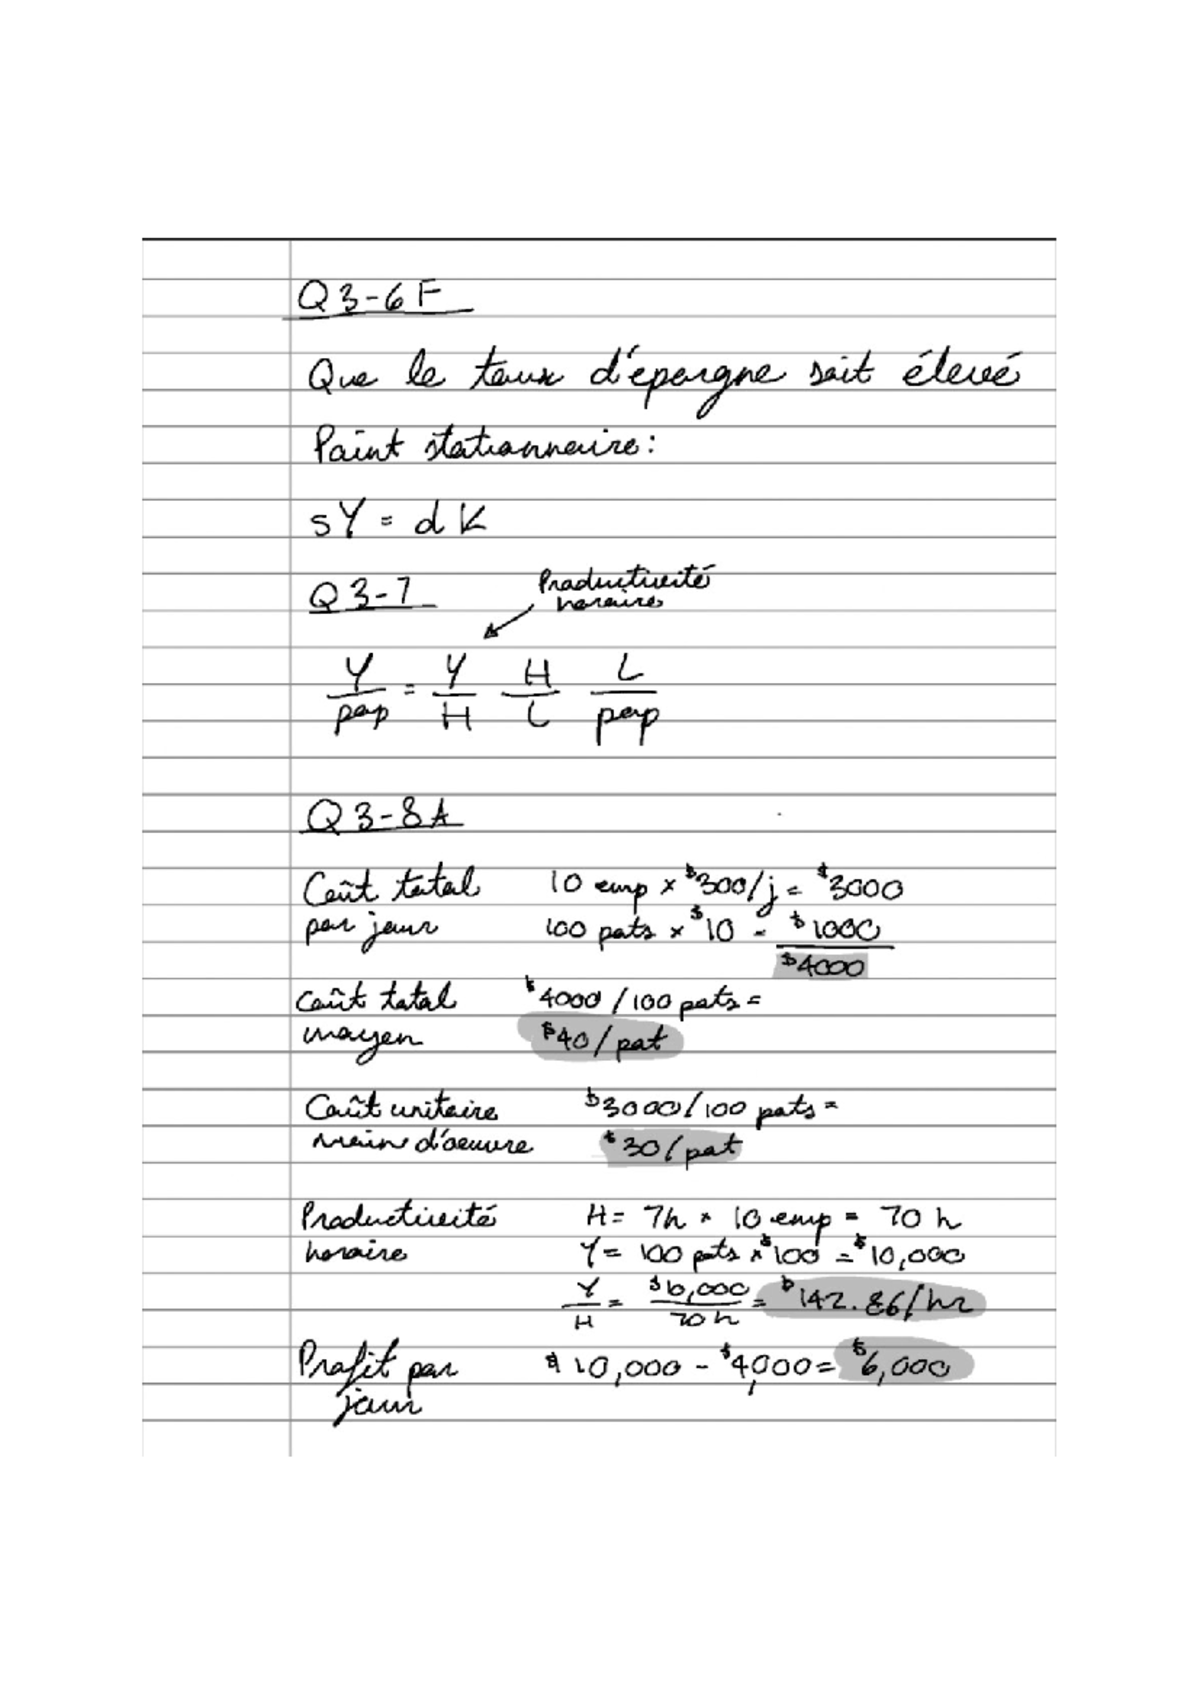 Q3-6F
Que le taux d'épargne soit élevé
Point stationnaire:
sY = dK
Q3-7
Productivité
horaire
Y/pop = Y/H H/L L/pop
Q3-8A
Coût total 10 emp x $300/j = $3000
par jour 100 pots x $10 = $1000
$4000
Coût total $4000/100 pots =
moyen $40/pot
Coût unitaire $3000/100 pots =
main d'oeuvre $30/pot
Productivité H = 7h x 10 emp = 70 h
horaire Y = 100 pots x $100 = $10,000
Y/H = $10,000/70h = $142.86/hr
Profit par $10,000 - $4,000 = $6,000
jour